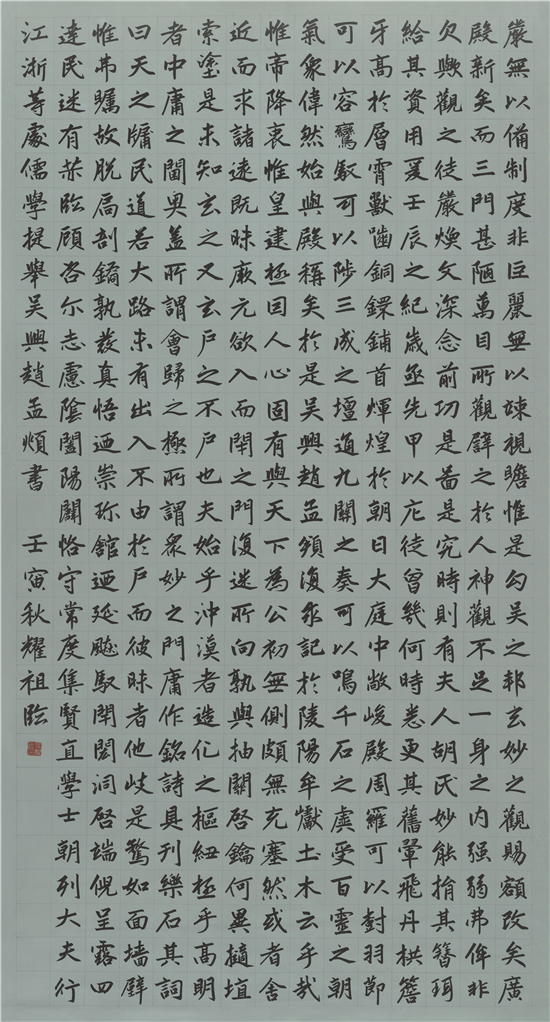 嚴無以備制度非巨麗無以竦視瞻惟是勾吳之邦玄妙之觀賜額改矣廣
殿新矣而三門甚陋萬目所觀譬之於人神觀不足一身之内强弱弗侔非
欠歟觀之徒嚴煥文深念前功是啚是究時則有夫人胡氏妙能捐其簪珥
給其資用爰壬辰之紀歲亟先甲以庀徒曾幾何時悉更其舊翬飛丹栱簷
牙高於層霄獸齧銅鐶鋪首輝煌於朝日大庭中敞峻殿周羅可以對羽節
可以容鸞馭可以陟三成之壇道九關之奏可以鳴千石之虡受百靈之朝
氣象偉然始與殿稱矣於是吳興趙孟頫復求記於陵陽牟巘土木云乎哉
惟帝降衷惟皇建極因人心固有與天下為公初無側頗無充塞然或者舍
近而求諸遠既昧厥元欲入而閉之門復迷所向孰與抽關啓鑰何異擿埴
索塗是未知玄之又玄戶之不戶也夫始乎沖漠者造化之樞紐極乎高明
者中庸之閫奥盖所謂會歸之極所謂衆妙之門庸作銘詩具刊樂石其詞
曰天之牖民道若大路未有出入不由於戶而彼昧者他岐是騖如面墻壁
惟弗矚故脫扃剖鐍孰發真悟迺崇珎館迺延飈馭閈閎洞啓端倪呈露四
達民迷有赫臨顧咨尔志慮陰闔陽闢恪守常度集賢直學士朝列大夫行
江浙等處儒學提舉吳興趙孟頫書 壬寅秋耀祖臨